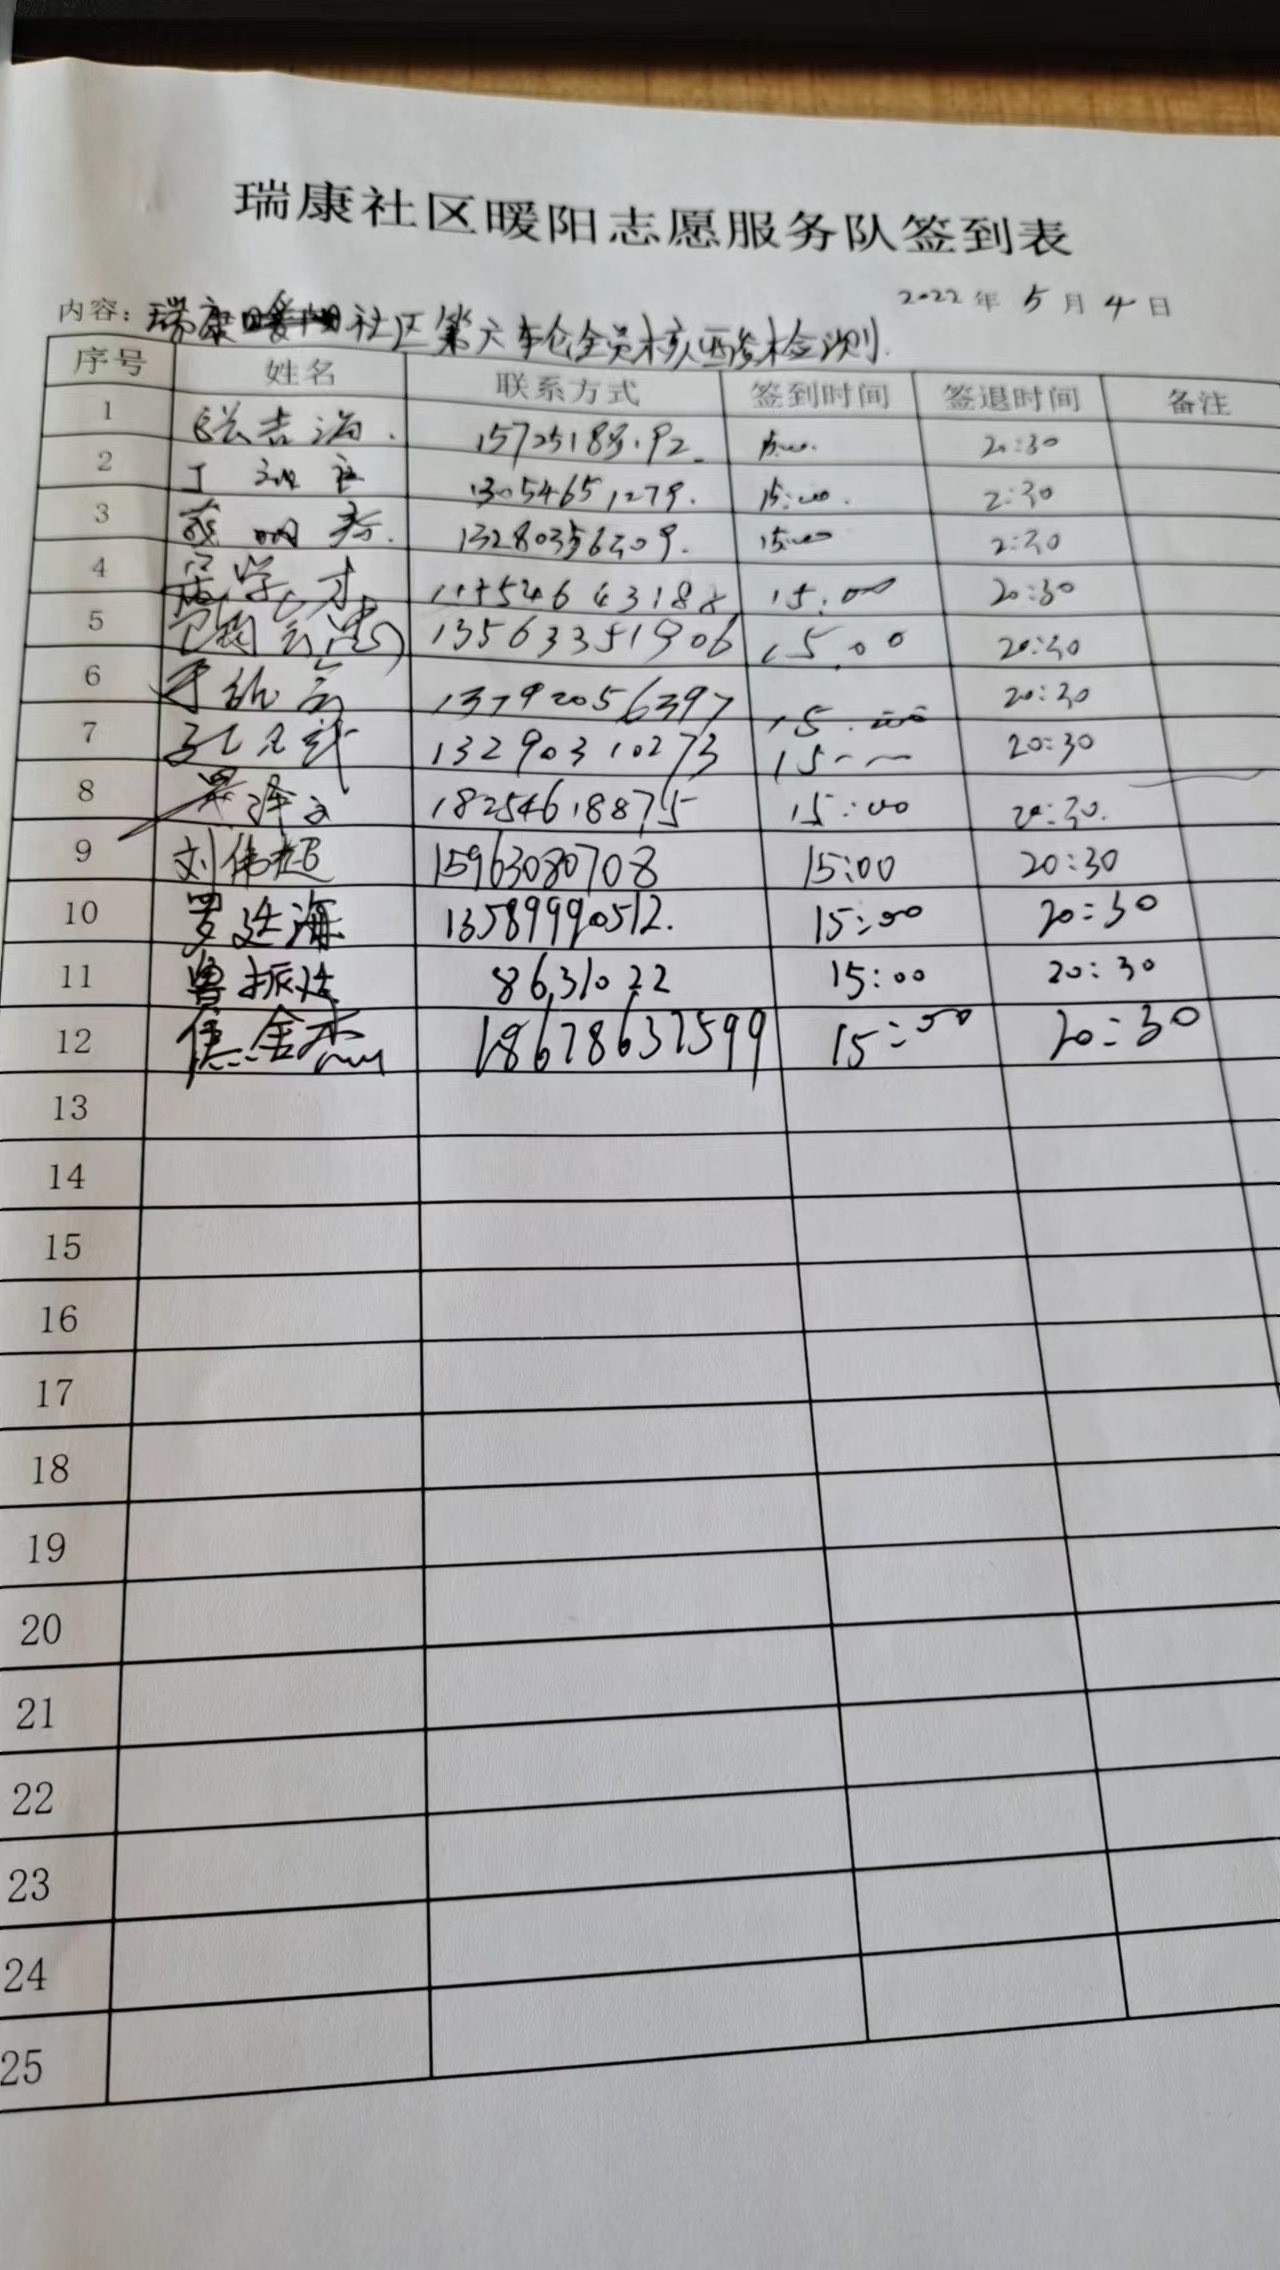 瑞康社区暖阳志愿服务队签到表
2022年5月4日
内容：瑞康社区第六轮全员核酸检测
序号 姓名 联系方式 签到时间 签退时间 备注
1 吉海 20:30
2 丁 13054651279. 15:00. 2:30
3 13280356309. 15:00 2:30
4 学才 15:00 20:30
5 13563351906 15:00 20:30
6 13792056397 15:00 20:30
7 13290310273 15 20:30
8 18254618875 15:00 20:30.
9 刘伟超 15963080708 15:00 20:30
10 罗廷海 13589990512. 15:00 20:30
11 曾振 8631022 15:00 20:30
12 金杰 18678637599 15:00 20:30
13
14
15
16
17
18
19
20
21
22
23
24
25